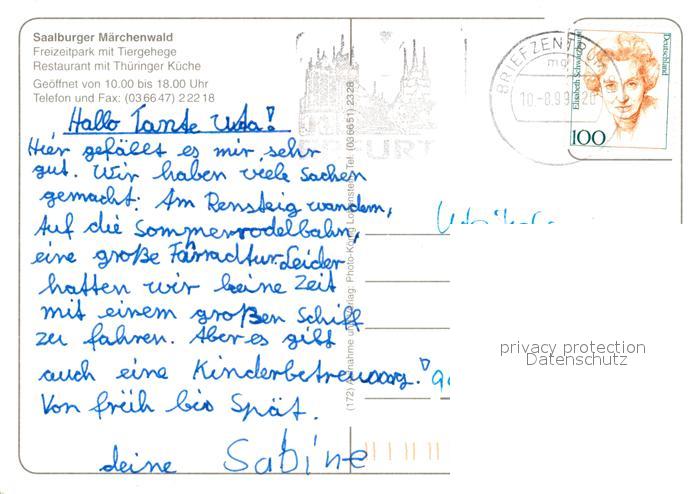 Saalburger Märchenwald
Freizeitpark mit Tiergehege
Restaurant mit Thüringer Küche
Geöffnet von 10.00 bis 18.00 Uhr
Telefon und Fax: (03 66 47) 2 22 18
Hallo Tante Uta!
Hier gefällt es mir sehr
gut. Wir haben viele Sachen
gemacht: Am Rensteig wandern,
Auf die Sommerrodelbahn,
eine große Farradtur. Leider
hatten wir keine Zeit
mit einem großen Schiff
zu fahren. Aber es gibt
auch eine Kinderbetreuoorg!
Von früh bis Spät.
deine Sabine
(172) Aufnahme und Verlag: Photo-König Lobenstein Tel. (036651) 2328
ERFURT
BRIEFZENTRUM
mg
10.-8.99
Elisabeth Schwarzhaupt
Deutschland
100
privacy protection
Datenschutz